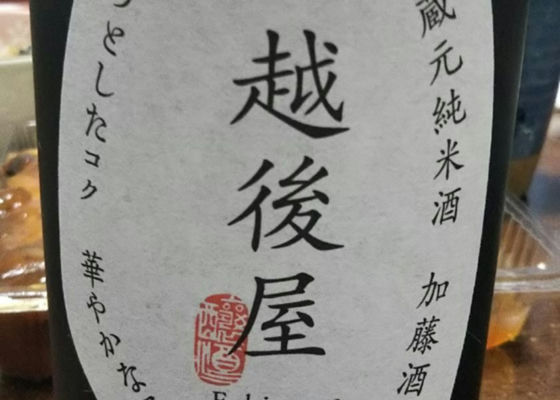 蔵元純米酒 加藤酒
越後屋
っとしたコク 華やかな